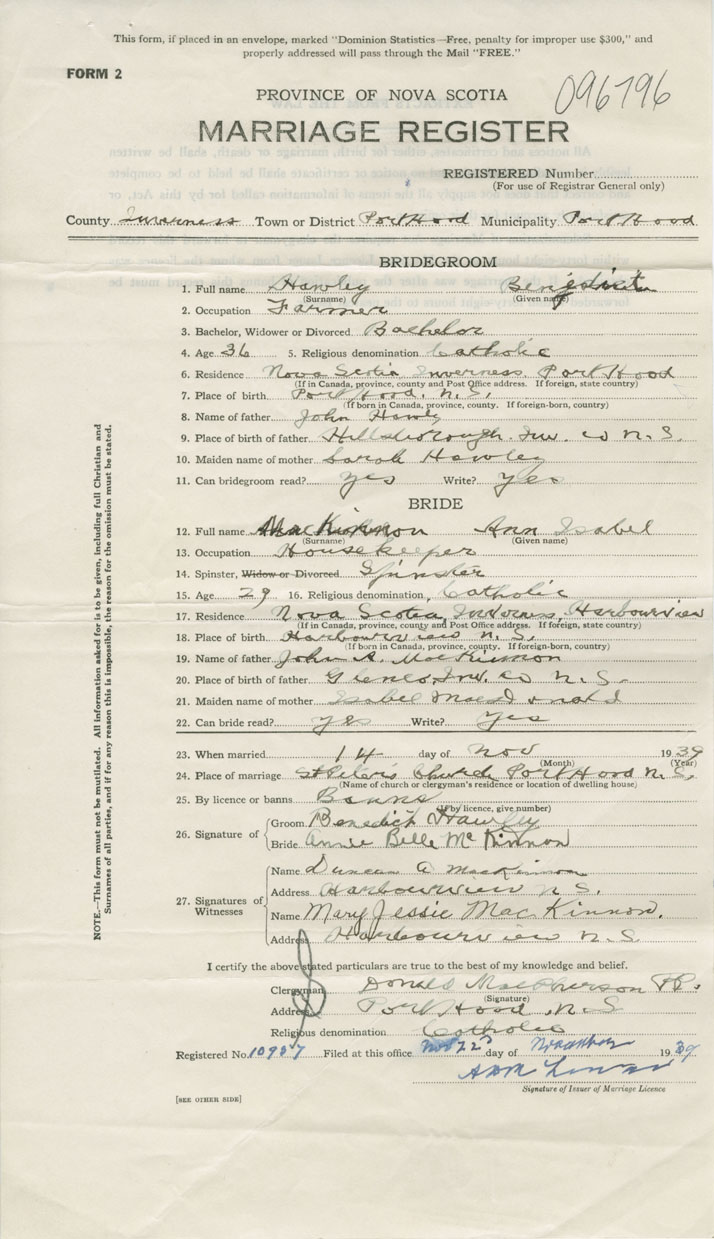 This form, if placed in an envelope, marked "Dominion Statistics—Free, penalty for improper use $300," and
properly addressed will pass through the Mail "FREE."
FORM 2
096796
PROVINCE OF NOVA SCOTIA
MARRIAGE REGISTER
REGISTERED Number
(For use of Registrar General only)
County Inverness Town or District Port Hood Municipality Port Hood
BRIDEGROOM
1. Full name Hawley Benedict
(Surname) (Given name)
2. Occupation Farmer
3. Bachelor, Widower or Divorced Bachelor
4. Age 36 5. Religious denomination Catholic
6. Residence Nova Scotia Inverness Port Hood
(If in Canada, province, county and Post Office address. If foreign, state country)
7. Place of birth Port Hood, N.S.
(If born in Canada, province, county. If foreign-born, country)
8. Name of father John Hawley
9. Place of birth of father Hillsborough Inv. co N.S.
10. Maiden name of mother Sarah Hawley
11. Can bridegroom read? yes Write? yes
BRIDE
12. Full name MacKinnon Ann Isabel
(Surname) (Given name)
13. Occupation Housekeeper
14. Spinster, Widow or Divorced Spinster
15. Age 29 16. Religious denomination Catholic
17. Residence Nova Scotia, Inverness, Harbourview
(If in Canada, province, county and Post Office address. If foreign, state country)
18. Place of birth Harbourview N.S.
(If born in Canada, province, county. If foreign-born, country)
19. Name of father John A. MacKinnon
20. Place of birth of father Inv. co N.S.
21. Maiden name of mother Isabel MacDonald
22. Can bride read? yes Write? Yes
23. When married 14 day of Nov 1939
(Month) (Year)
24. Place of marriage St Peter's Church Port Hood N.S.
(Name of church or clergyman's residence or location of dwelling house)
25. By licence or banns Banns
(If by licence, give number)
26. Signature of Groom Benedict Hawley
Bride Annie Belle McKinnon
27. Signatures of Witnesses
Name Duncan A MacKinnon
Address Harbourview N S.
Name Mary Jessie MacKinnon.
Address Harbourview N.S
I certify the above stated particulars are true to the best of my knowledge and belief.
Clergyman Donald MacPherson P.P.
(Signature)
Address Port Hood N.S
Religious denomination Catholic
Registered No. 10937 Filed at this office Nov 22 day of November 1939
Signature of Issuer of Marriage Licence
[SEE OTHER SIDE]
NOTE.—This form must not be mutilated. All information asked for is to be given, including full Christian and
Surnames of all parties, and if for any reason this is impossible, the reason for the omission must be stated.